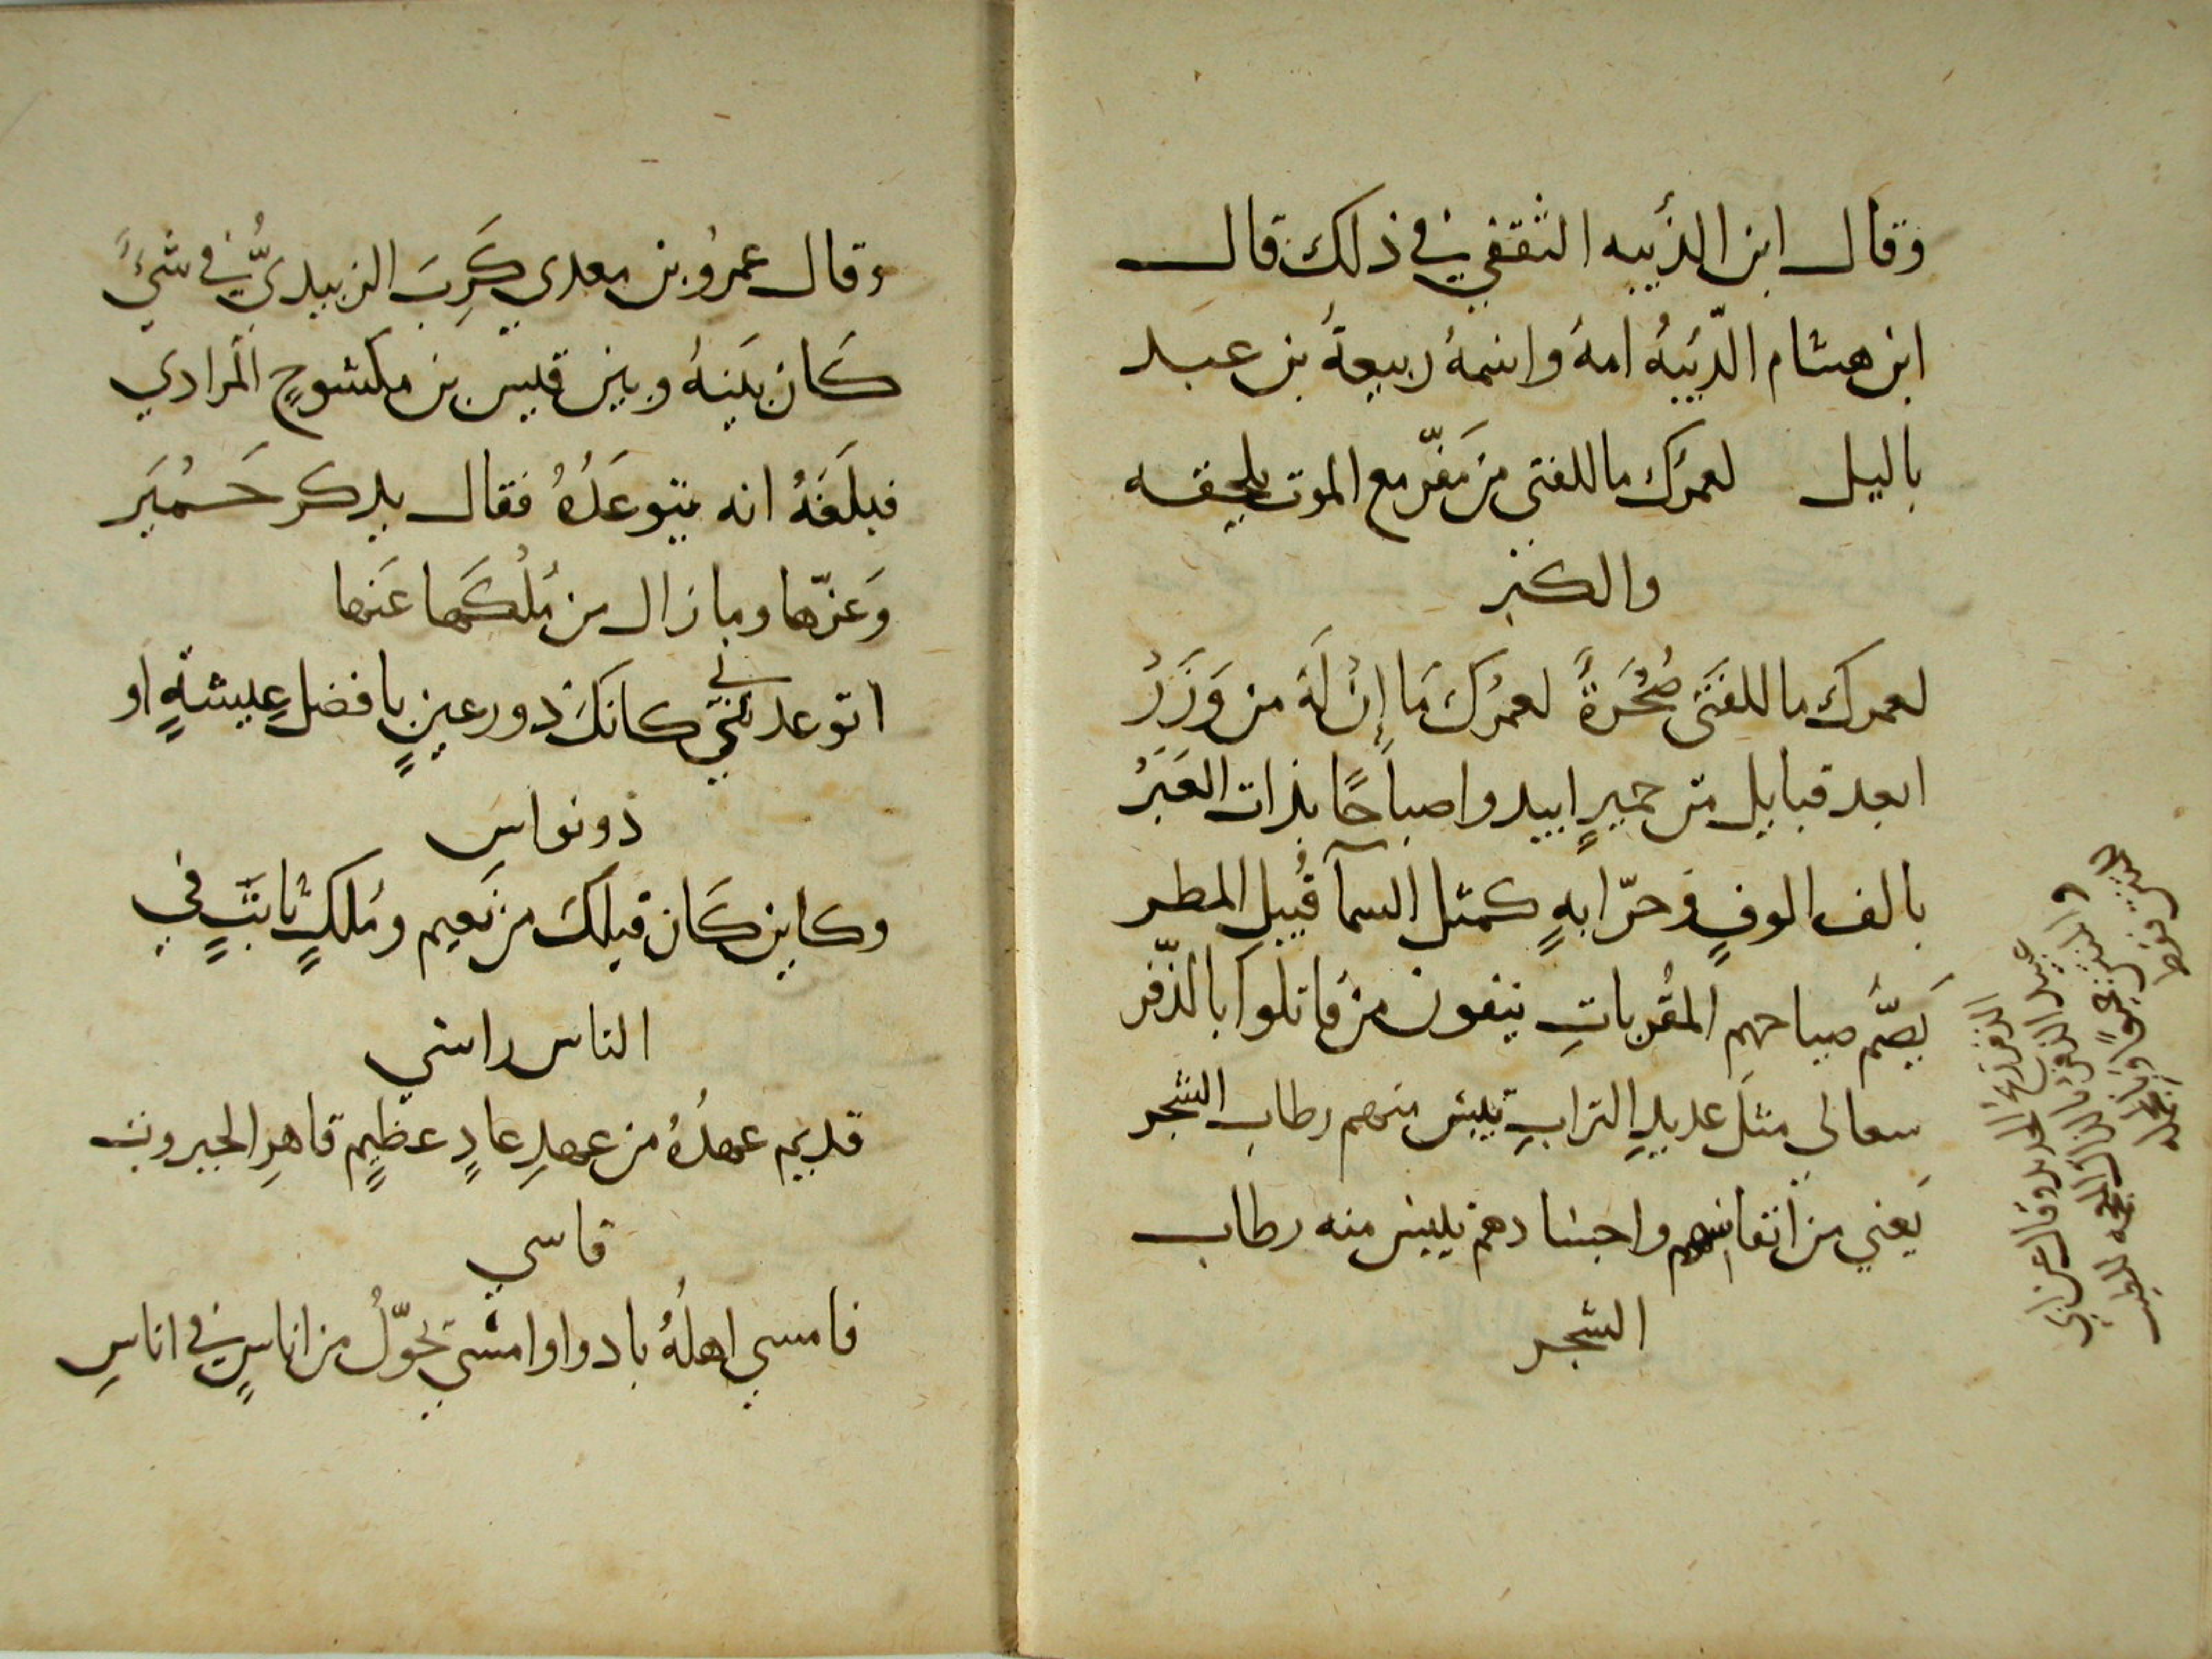 وقال ابن الذئبه الثقفي في ذلك قال
ابن هشام الذّئبةُ امهُ واسمهُ ربيعةُ بن عبد
باليل لعمرك ماللفتى من مفرّ مع الموت يلحقه
والكبر
لعمرك ماللفتى صُحْرَةٌ لعمرك مَا إِنْ لَهُ من وَزَرْ
ابعد قبايل من حميرٍ ابيدوا صباحًا بذات العَبَرْ
بالف الوفٍ وحرّابهٍ كمثل السمآ قُبيل المطر
يَصُمُّ صياحهم المُقْرباتِ ينفون من قاتلوا بالذّفر
سعالي مثلَ عديدِ الترابِ تيبس منهم رطاب الشجر
يَعني من انفاسهم واجسادهم ييبس منه رطاب
الشجر
الذفر ريح
عبيد الذفر بالذال المعجمه للطيب
والنتن جميعًا
وقال عمرُو بن معدي كَرِبَ الزبيديُّ في شئٍ
كَان بَينهُ وبين قيس بن مكشوحٍ المرادي
فبلَغهُ انه يتوعَدُهُ فقال يذكر حَمْيَر
وَعَزّها ومازال من مُلْكَهِا عَنها
اتوعدنني كانكَ ذو رعينٍ بافضل عِيشةٍ او
ذو نواس
وكاين كَان قبلكَ من نَعيم ومُلكٍ ثابتٍ في
الناس راسي
قديم عهدُهُ من عهدِ عادٍ عظيمٍ قاهرِ الجبروت
قاسي
فامسي اهلُهُ بادوا وامسي تحوّلُ من اناسٍ في اناسِ